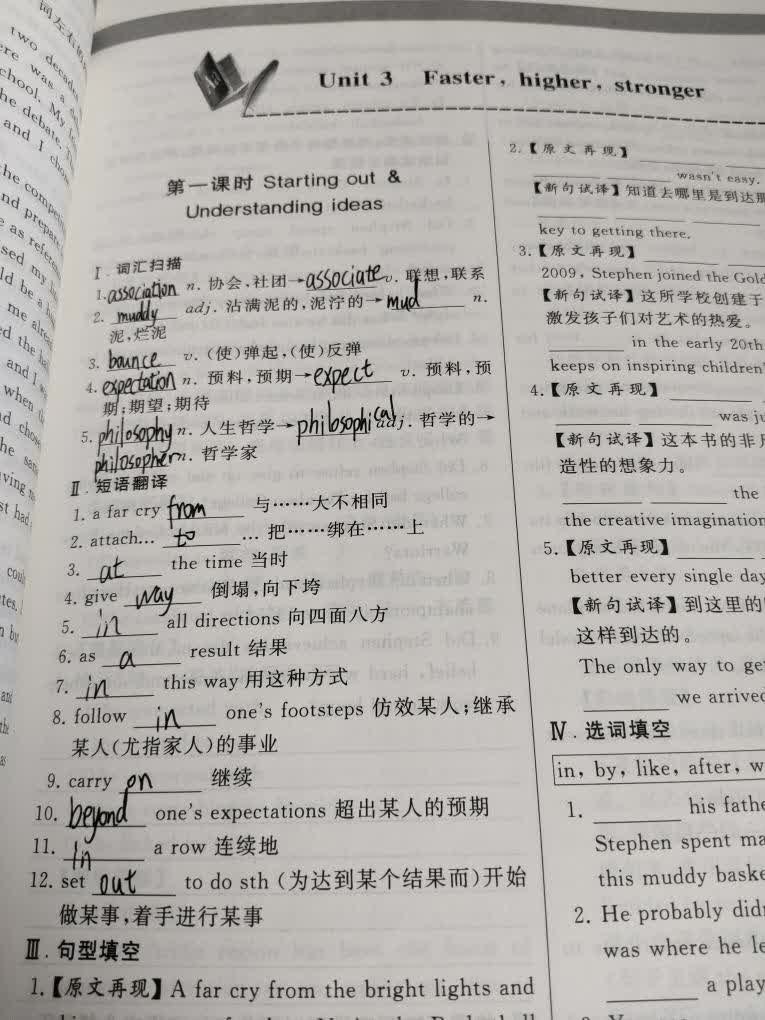 同左右的
two decades
ere was a
chool. My
he debate.
and I cho
the compe
nd prepare
e as refere
sed my
ld be a
me alre
ed the
and I w
when
d chose
he sam
ving
st had
coul
Unit 3 Faster, higher, stronger
第一课时 Starting out &
Understanding ideas
Ⅰ. 词汇扫描
1. association n. 协会,社团→associate v. 联想,联系
2. muddy adj. 沾满泥的,泥泞的→mud n.
泥,烂泥
3. bounce v. (使)弹起,(使)反弹
4. expectation n. 预料,预期→expect v. 预料,预
期;期望;期待
5. philosophy n. 人生哲学→philosophical adj. 哲学的→
philosopher n. 哲学家
Ⅱ. 短语翻译
1. a far cry from 与……大不相同
2. attach... to ... 把……绑在……上
3. at the time 当时
4. give way 倒塌,向下垮
5. in all directions 向四面八方
6. as a result 结果
7. in this way 用这种方式
8. follow in one's footsteps 仿效某人;继承
某人(尤指家人)的事业
9. carry on 继续
10. beyond one's expectations 超出某人的预期
11. in a row 连续地
12. set out to do sth (为达到某个结果而)开始
做某事,着手进行某事
Ⅲ. 句型填空
1.【原文再现】A far cry from the bright lights and
2.【原文再现】
wasn't easy.
【新句试译】知道去哪里是到达那
key to getting there.
3.【原文再现】
2009, Stephen joined the Gold
【新句试译】这所学校创建于
激发孩子们对艺术的热爱。
in the early 20th
keeps on inspiring children'
4.【原文再现】
was ju
【新句试译】这本书的非凡
造性的想象力。
the
the creative imagination
5.【原文再现】
better every single day
【新句试译】到这里的
这样到达的。
The only way to ge
we arrived
Ⅳ. 选词填空
in, by, like, after, w
1. his fathe
Stephen spent ma
this muddy baske
2. He probably didn
was where he le
a play